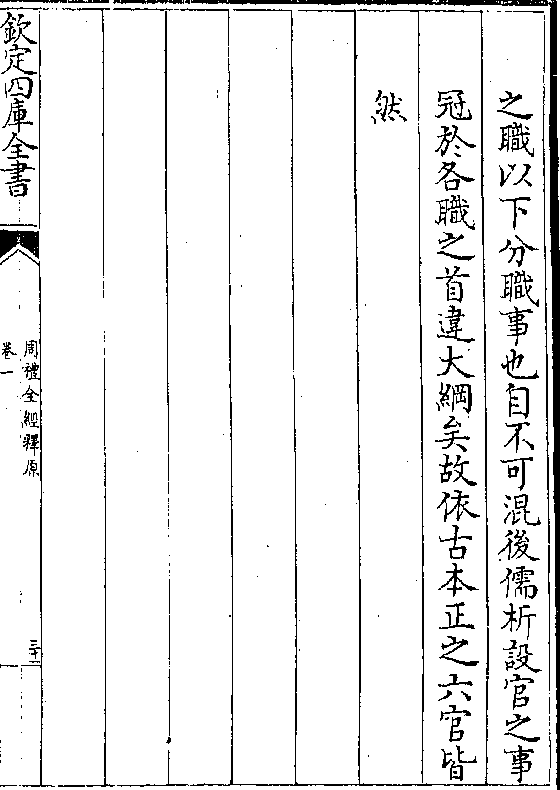 之職以下分職事也自不可混後儒析設官之事
冠於各職之首違大綱矣故依古本正之六官皆
然
欽定四庫全書
周禮全經釋原
卷一